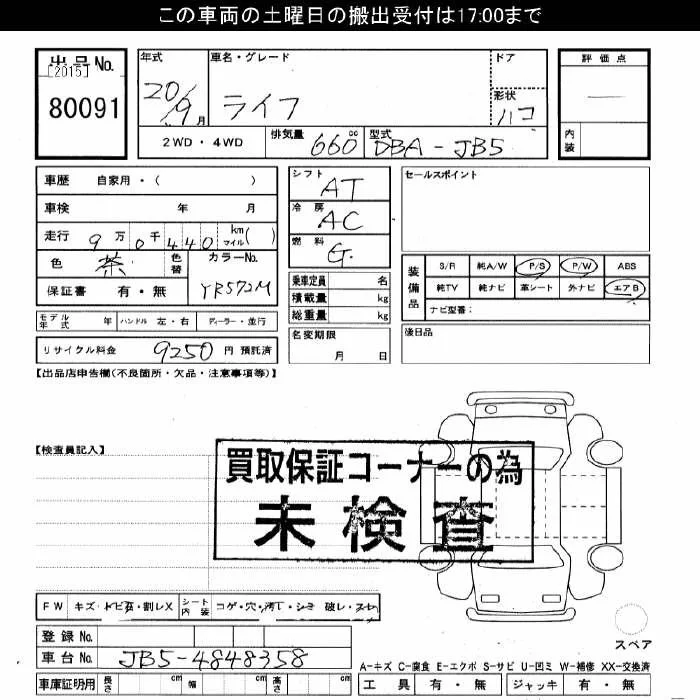 この車両の土曜日の搬出受付は17:00まで
出品No.
[2015]
80091
年式
20/9月
車名・グレード
ライフ
ドア
形状
ハコ
評価点
内装
2WD・4WD
排気量 660 cc
型式 DBA-JB5
車歴 自家用・( )
車検 年 月
走行 9万0千440 km マイル( )
色 茶 色替
カラーNo. YR572M
保証書 有・無
シフト AT
冷房 AC
燃料 G.
セールスポイント
装備品
S/R 純A/W P/S P/W ABS
純TV 純ナビ 革シート 外ナビ エアB
ナビ型番:
乗車定員 名
積載量 kg
総重量 kg
モデル年式 年 ハンドル 左・右 ディーラー・並行
名変期限
月 日
後日品
リサイクル料金 9250 円 預託済
【出品店申告欄(不良箇所・欠品・注意事項等)】
【検査員記入】
買取保証コーナーの為
未検査
FW キズ・トビ石・割レX シート内装 コゲ・穴・汚レ・シミ 破レ・スレ
登録No.
車台No. JB5-4848358
スペア
A-キズ C-腐食 E-エクボ S-サビ U-凹ミ W-補修 XX-交換済
車庫証明用 長さ cm 幅 cm 高さ cm
工具 有・無 ジャッキ 有・無